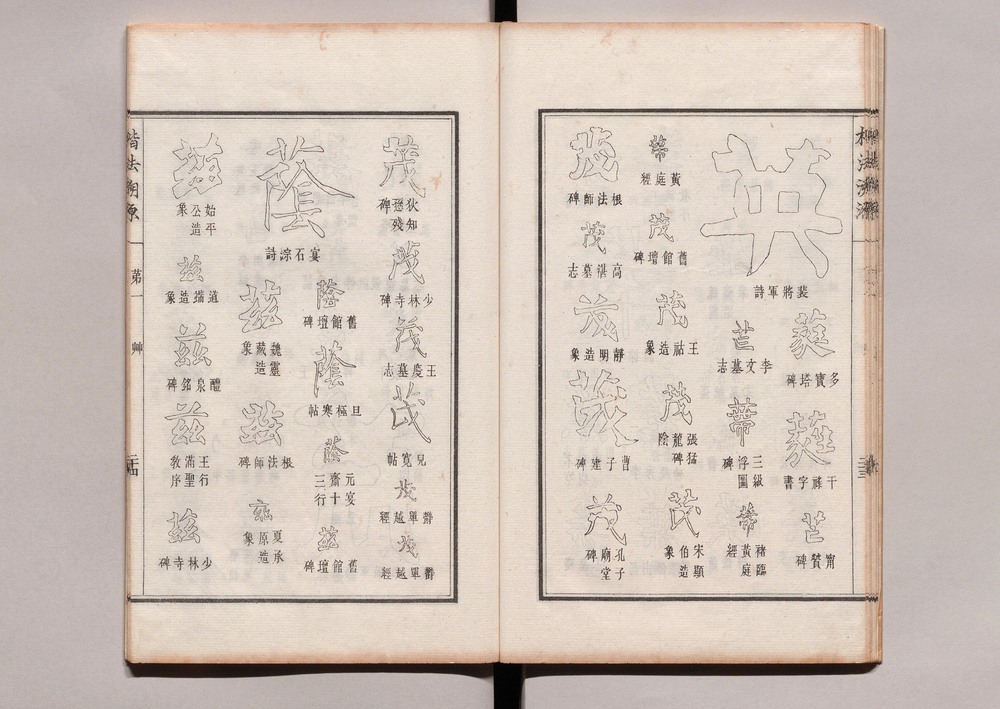 英
裴將軍詩
蕤
多寶塔碑
蕤
干祿字書
芒
甯贙碑
芒
李文墓志
蔕
三級浮圖碑
蔕
褚臨黃庭經
蔕
黃庭經
茂
舊館壇碑
茂
王祜造象
茂
張猛龍碑陰
茂
宋顯伯造象
茂
根法師碑
茂
高湛墓志
茂
靜明造象
茂
曹子建碑
茂
孔子廟堂碑
茂
狄知愻殘碑
茂
少林寺碑
茂
王慶墓志
茂
兒寬帖
茂
鬱單越經
茂
鬱單越經
蔭
宴石淙詩
蔭
舊館壇碑
蔭
旦極寒帖
蔭
元宴齋三十行
茲
舊館壇碑
茲
魏靈藏造象
茲
根法師碑
茲
夏承原造象
茲
始平公造象
茲
道瑞造象
茲
醴泉銘碑
茲
王行滿聖教序
茲
少林寺碑
楷法溯源
第一
艸